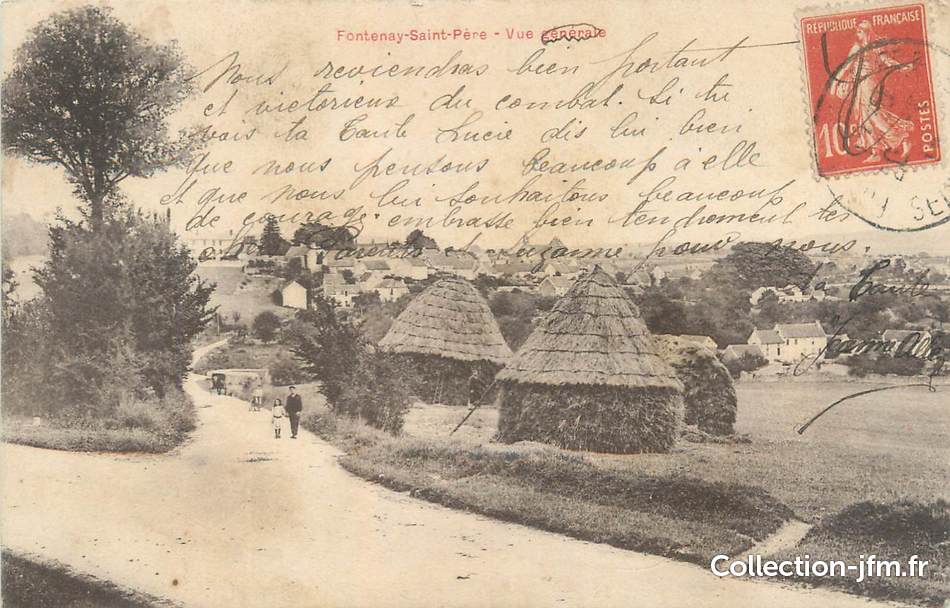 Fontenay-Saint-Père - Vue générale
RÉPUBLIQUE FRANÇAISE
10
POSTES
Nous reviendras bien portant
et victorieux du combat. Si tu
vois ta Tante Lucie dis lui bien
que nous pensons beaucoup à elle
et que nous lui souhaitons beaucoup
de courage. embrasse bien tendrement tes
Parents et Suzanne pour nous.
ta Tante
Collection-jfm.fr